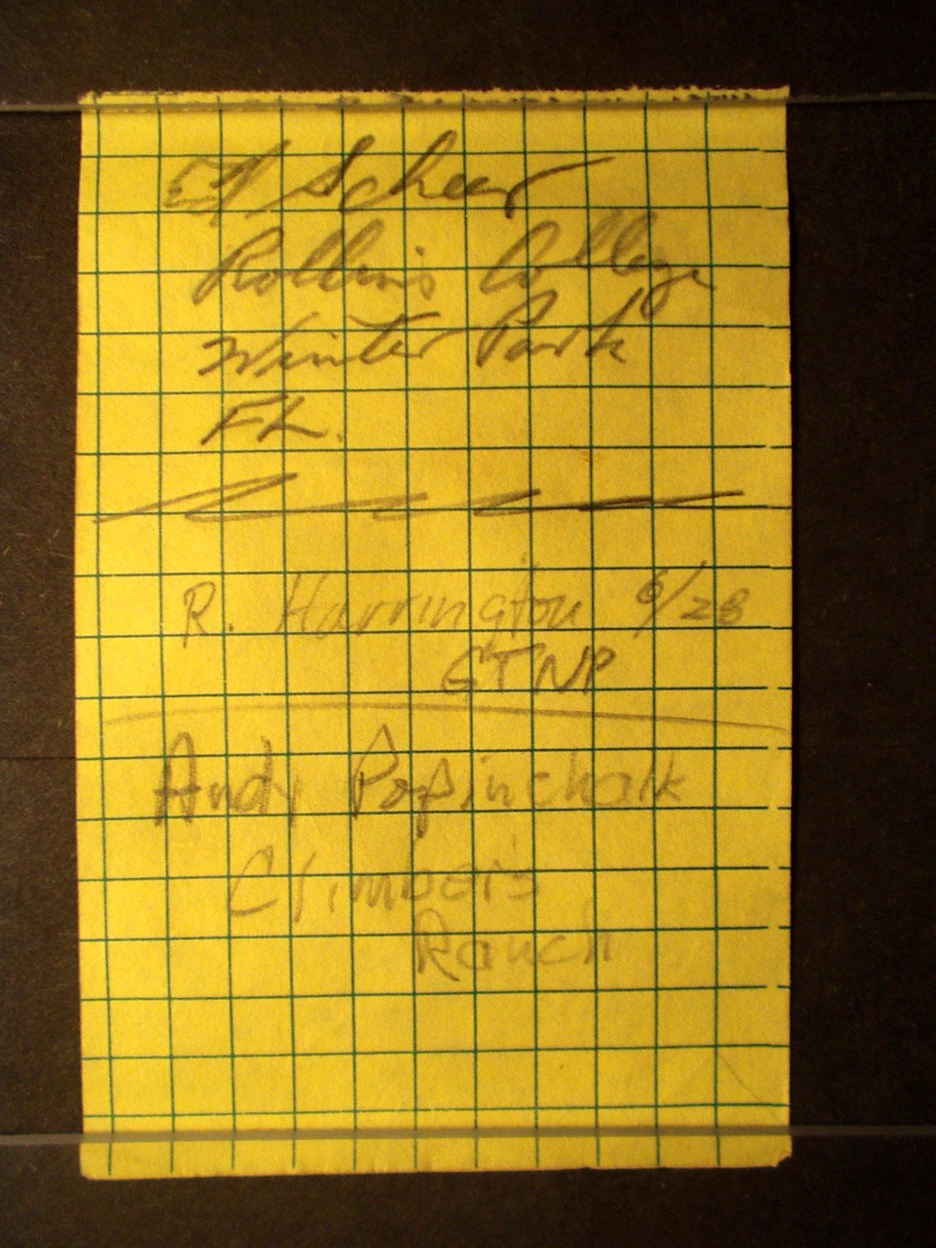 Ed Scheer
Rollins College
Winter Park
FL.
R. Harrington 6/28
GTNP
Andy Popinchalk
Climber's
Ranch